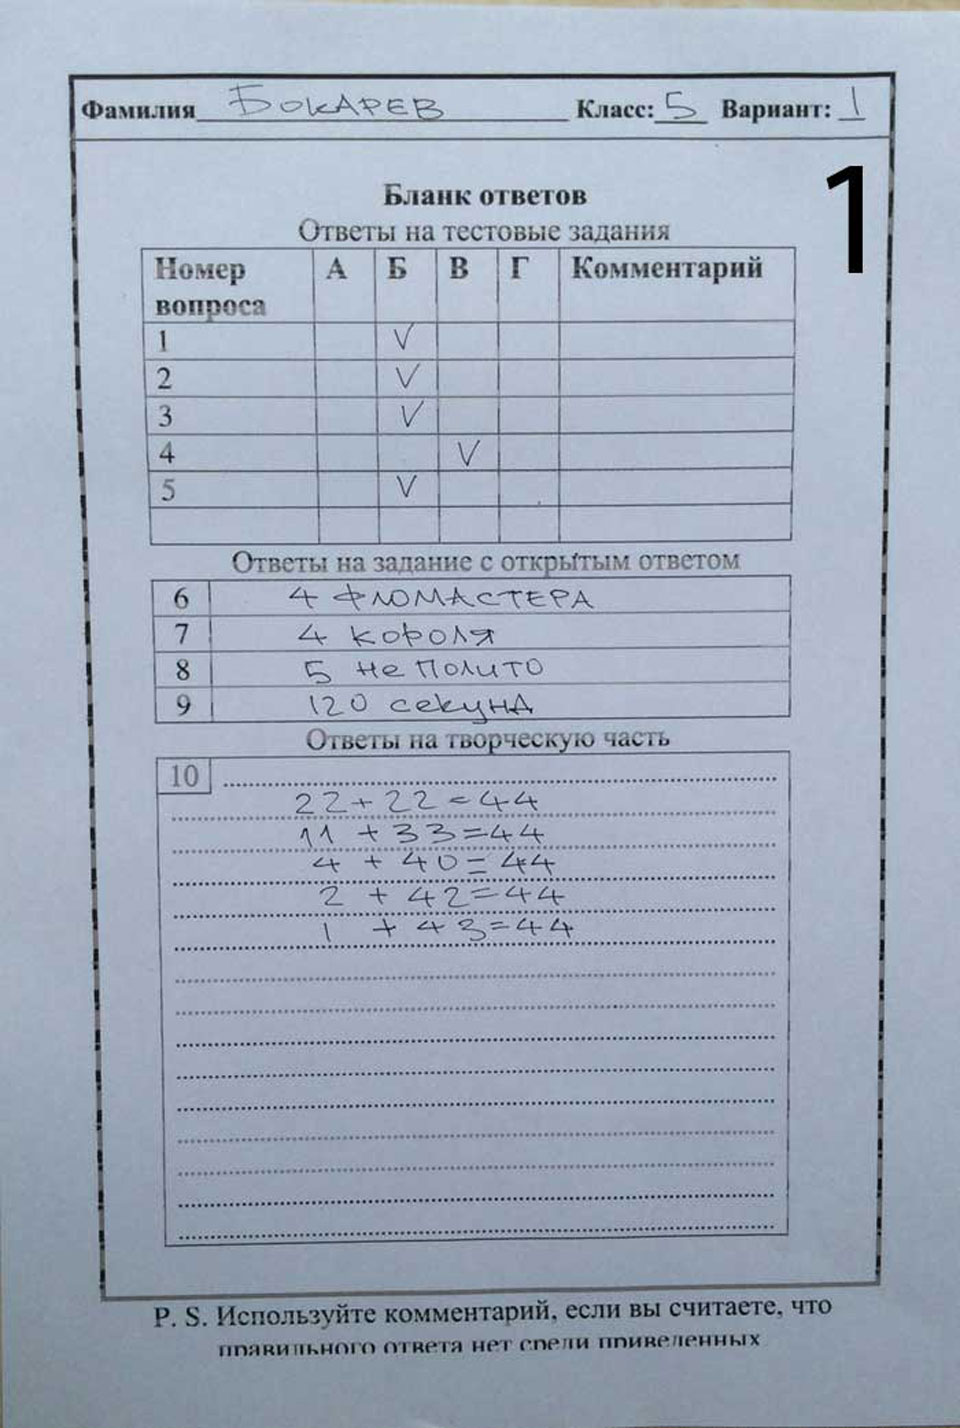 Фамилия БОКАРЕВ Класс: 5 Вариант: 1
1
Бланк ответов
Ответы на тестовые задания
Номер вопроса А Б В Г Комментарий
1 V
2 V
3 V
4 V
5 V
Ответы на задание с открытым ответом
6 4 ФЛОМАСТЕРА
7 4 короля
8 5 не полито
9 120 секунд
Ответы на творческую часть
10
22+22=44
11+33=44
4+40=44
2+42=44
1+43=44
P. S. Используйте комментарий, если вы считаете, что
правильного ответа нет среди приведенных